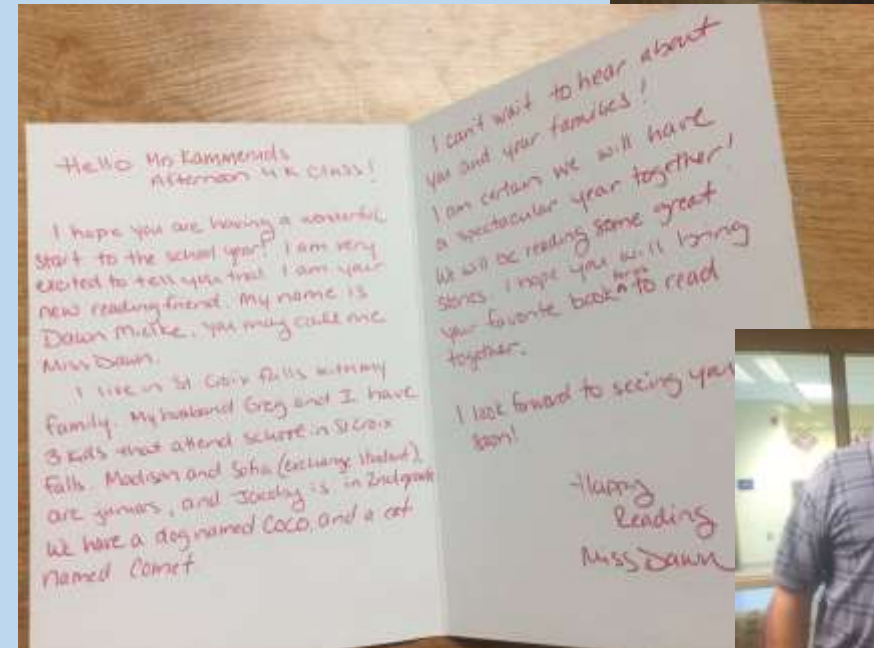 Hello Mrs Kammeruds
Afternoon 4K Class!
I hope you are having a wonderful
start to the school year! I am very
excited to tell you that I am your
new reading friend. My name is
Dawn Mielke, you may call me
Miss Dawn.
I live in St Croix Falls with my
family. My husband Greg and I have
3 kids that attend school in St Croix
falls. Madison and Sofia (exchange student)
are juniors, and is in 2nd grade
We have a dog named Coco, and a cat
named Comet
I can't wait to hear about
you and your families!
I am certain we will have
a spectacular year together!
We will be reading some great
stories. I hope you will bring
your favorite book to read
together.
I look forward to seeing you
soon!
Happy
Reading
Miss Dawn